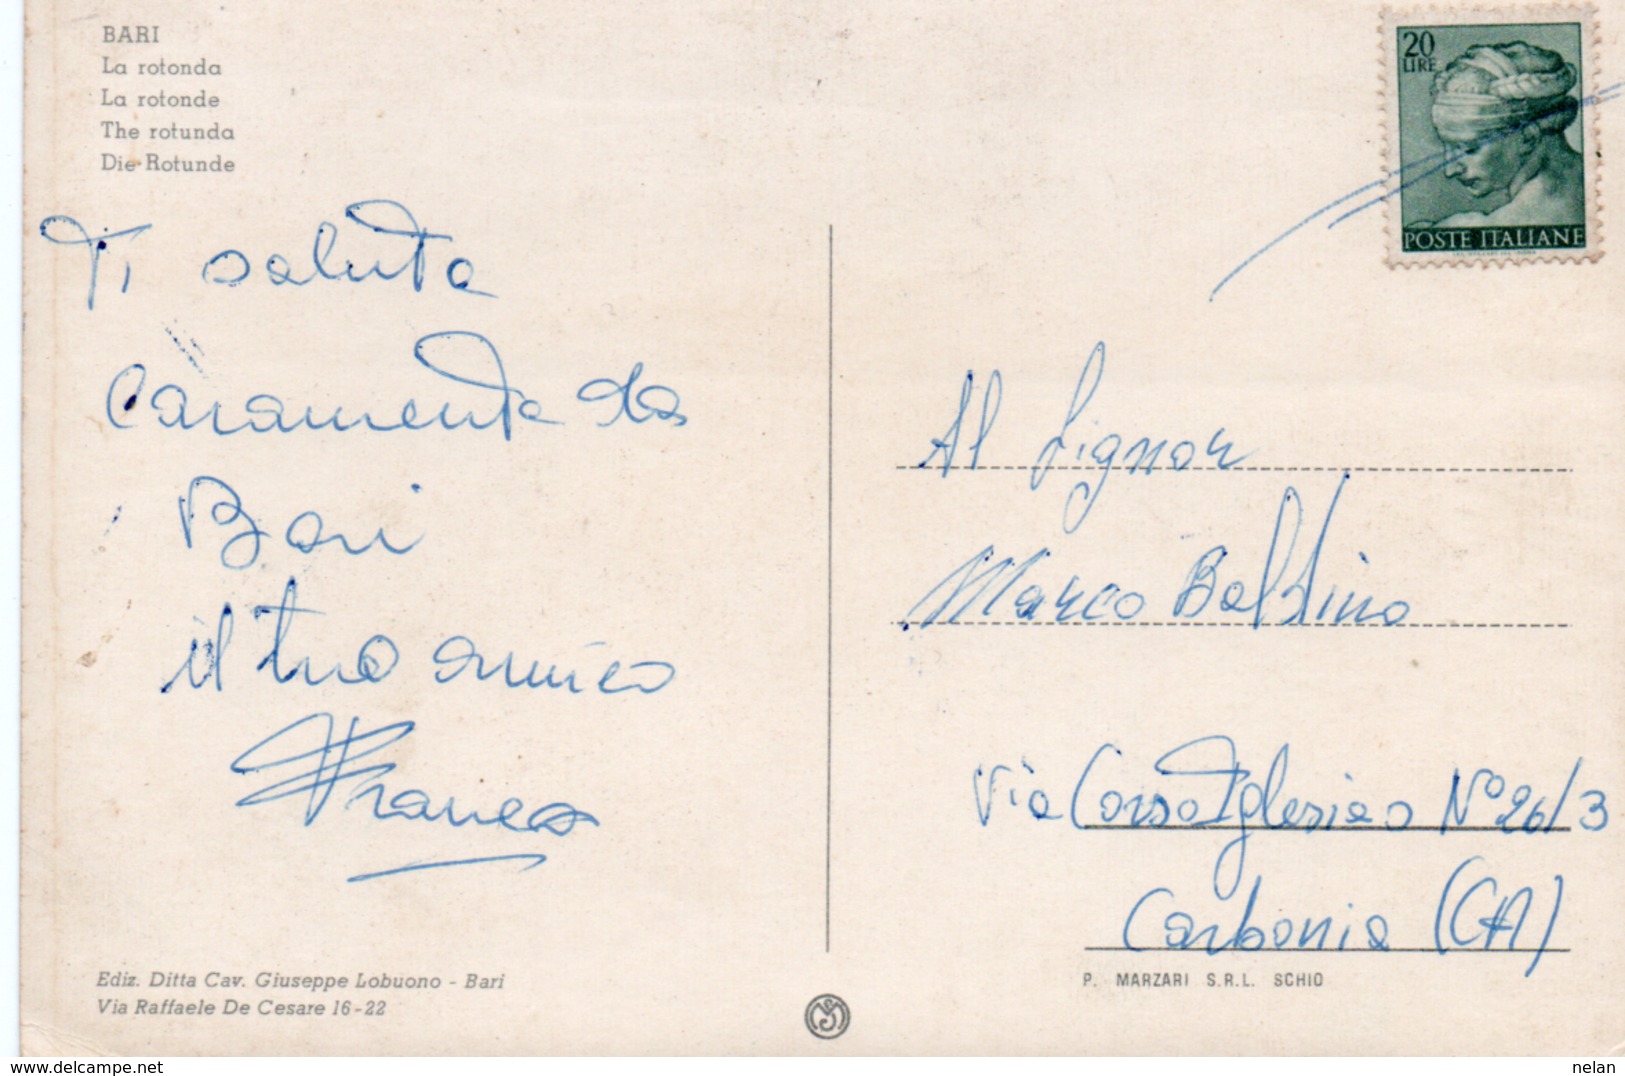 BARI
La rotonda
La rotonde
The rotunda
Die Rotunde
20
LIRE
POSTE ITALIANE
Ti saluta
Caramente da
Bari
il tuo amico
Franco
Al Signor
Marco Baldino
Via Corso Iglesias N° 26/3
Carbonia (CA)
Ediz. Ditta Cav. Giuseppe Lobuono - Bari
Via Raffaele De Cesare 16-22
P. MARZARI S.R.L. SCHIO
www.delcampe.net
nelan